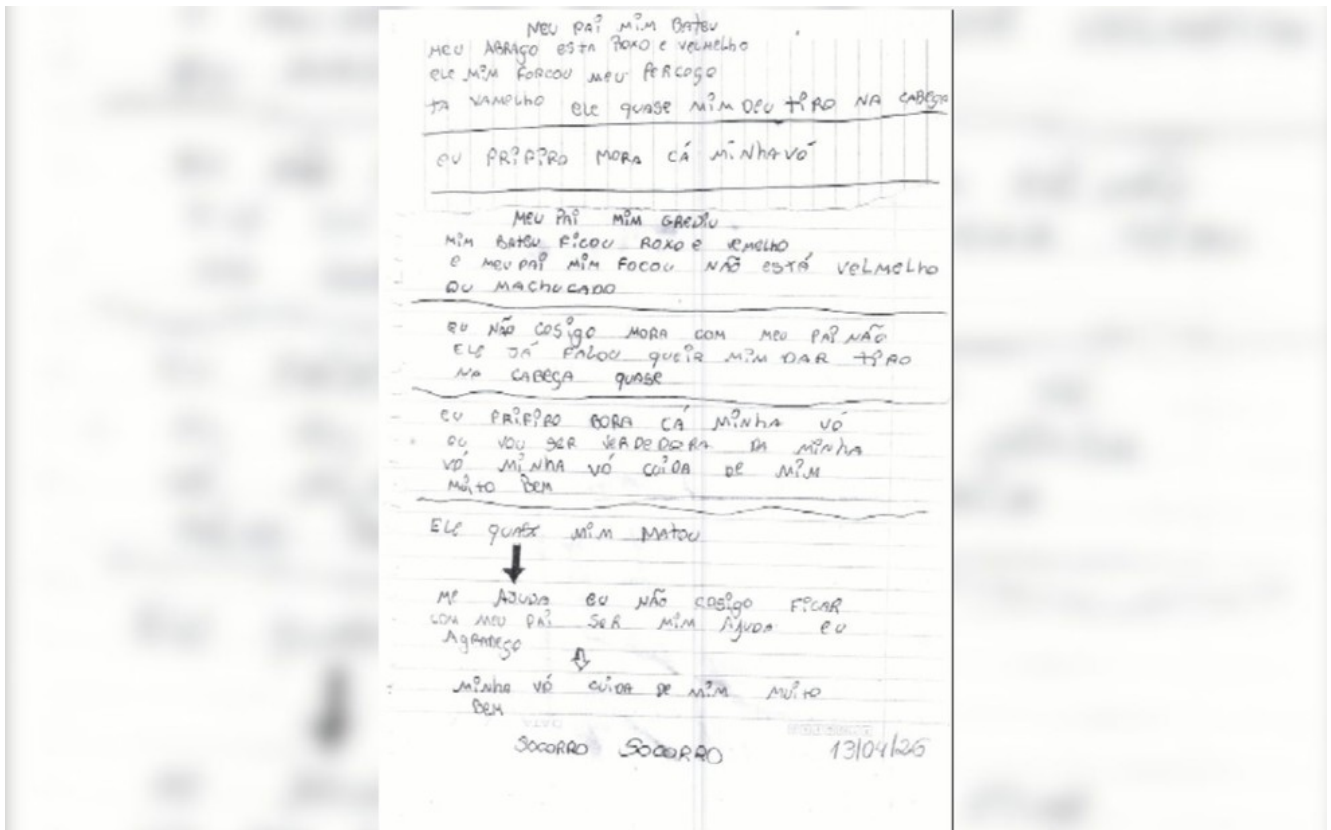 MEU PAI MIM BATEU
MEU ABRAÇO ESTA ROXO E VELMELHO
ELE MIM FORCOU MEU PERCOÇO
TA VAMELHO ELE QUASE MIM DEU TIRO NA CABEÇA
EU PRIFIRO MORA CÁ MINHA VÓ
MEU PAI MIM GREDIU
MIM BATEU FICOU ROXO E VEMELHO
E MEU PAI MIM FOCOU NÃO ESTÁ VELMELHO
OU MACHUCADO
EU NÃO COSIGO MORA COM MEU PAI NÃO
ELE JÁ FALOU QUEIR MIM DAR TIRO
NA CABEÇA QUASE
EU PRIFIRO BORA CÁ MINHA VÓ
EU VOU SER VERDEDORA DA MINHA
VÓ MINHA VÓ CUIDA DE MIM
MUITO BEM
ELE QUASE MIM MATOU
ME AJUDA EU NÃO COSIGO FICAR
COM MEU PAI SER MIM AJUDA EU
AGRADEÇO
MINHA VÓ CUIDA DE MIM MUITO
BEM
SOCORRO SOCORRO 13/04/26